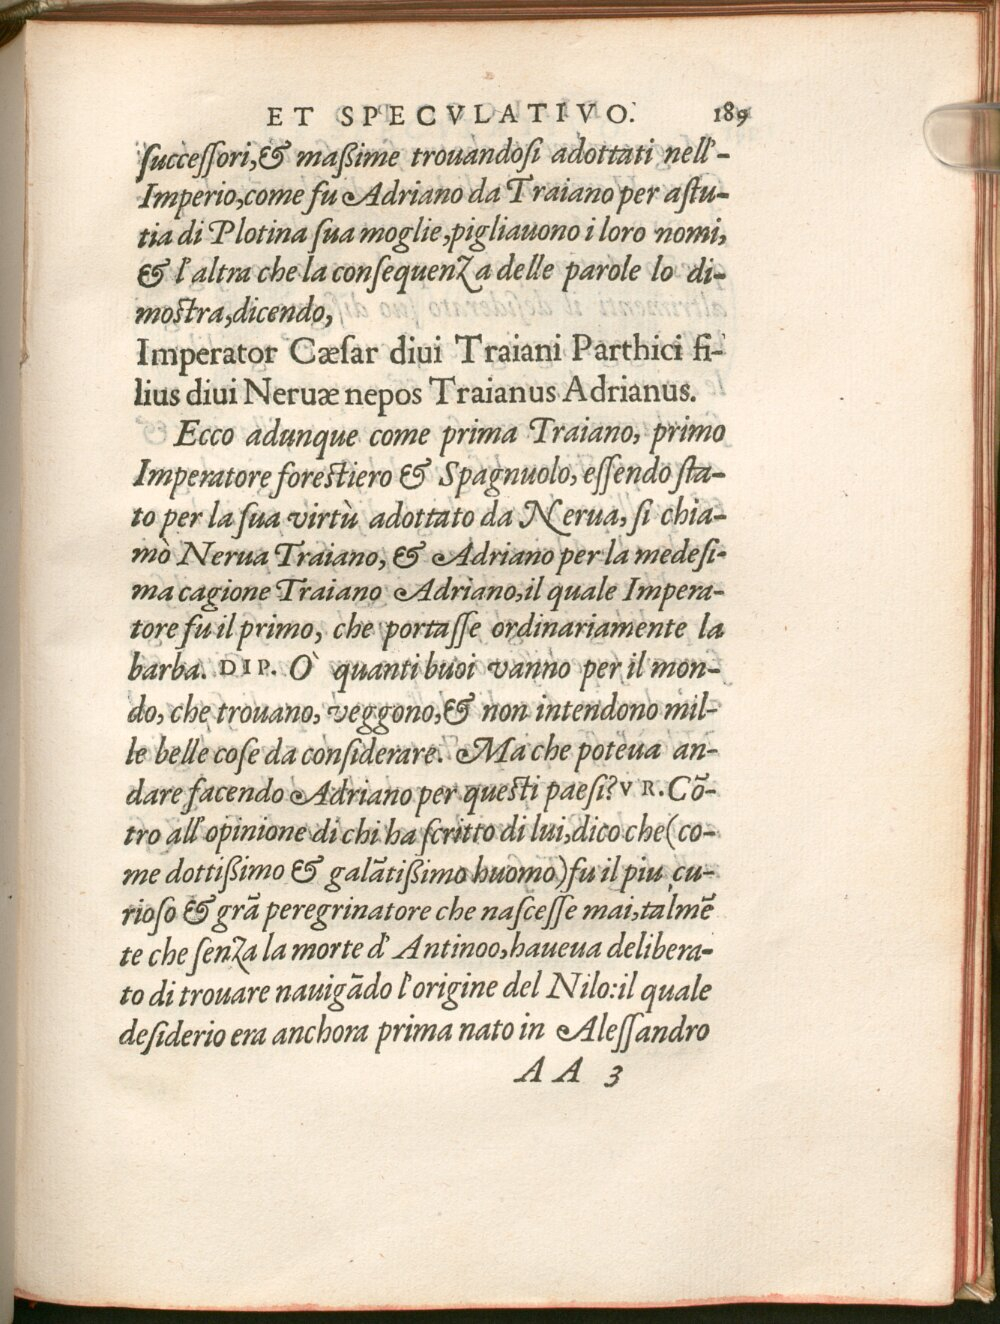 ET SPECVLATIVO. 189
successori,& maßime trouandosi adottati nell'-
Imperio,come fu Adriano da Traiano per astu-
tia di Plotina sua moglie,pigliauono i loro nomi,
& l'altra che la consequenza delle parole lo di-
mostra,dicendo,
Imperator Cæsar diui Traiani Parthici fi-
lius diui Neruæ nepos Traianus Adrianus.
Ecco adunque come prima Traiano, primo
Imperatore forestiero & Spagnuolo, essendo sta-
to per la sua virtù adottato da Nerua, si chia-
mò Nerua Traiano, & Adriano per la medesi-
ma cagione Traiano Adriano,il quale Impera-
tore fu il primo, che portasse ordinariamente la
barba. DIP. Ò quanti buoi vanno per il mon-
do, che trouano, veggono,& non intendono mil-
le belle cose da considerare. Ma che poteua an-
dare facendo Adriano per questi paesi? VR. Cõ-
tro all'opinione di chi ha scritto di lui,dico che(co-
me dottißimo & galãtißimo huomo)fu il piu cu-
rioso & grã peregrinatore che nascesse mai,talmẽ
te che senza la morte d'Antinoo,haueua delibera-
to di trouare nauigãdo l'origine del Nilo:il quale
desiderio era anchora prima nato in Alessandro
AA 3